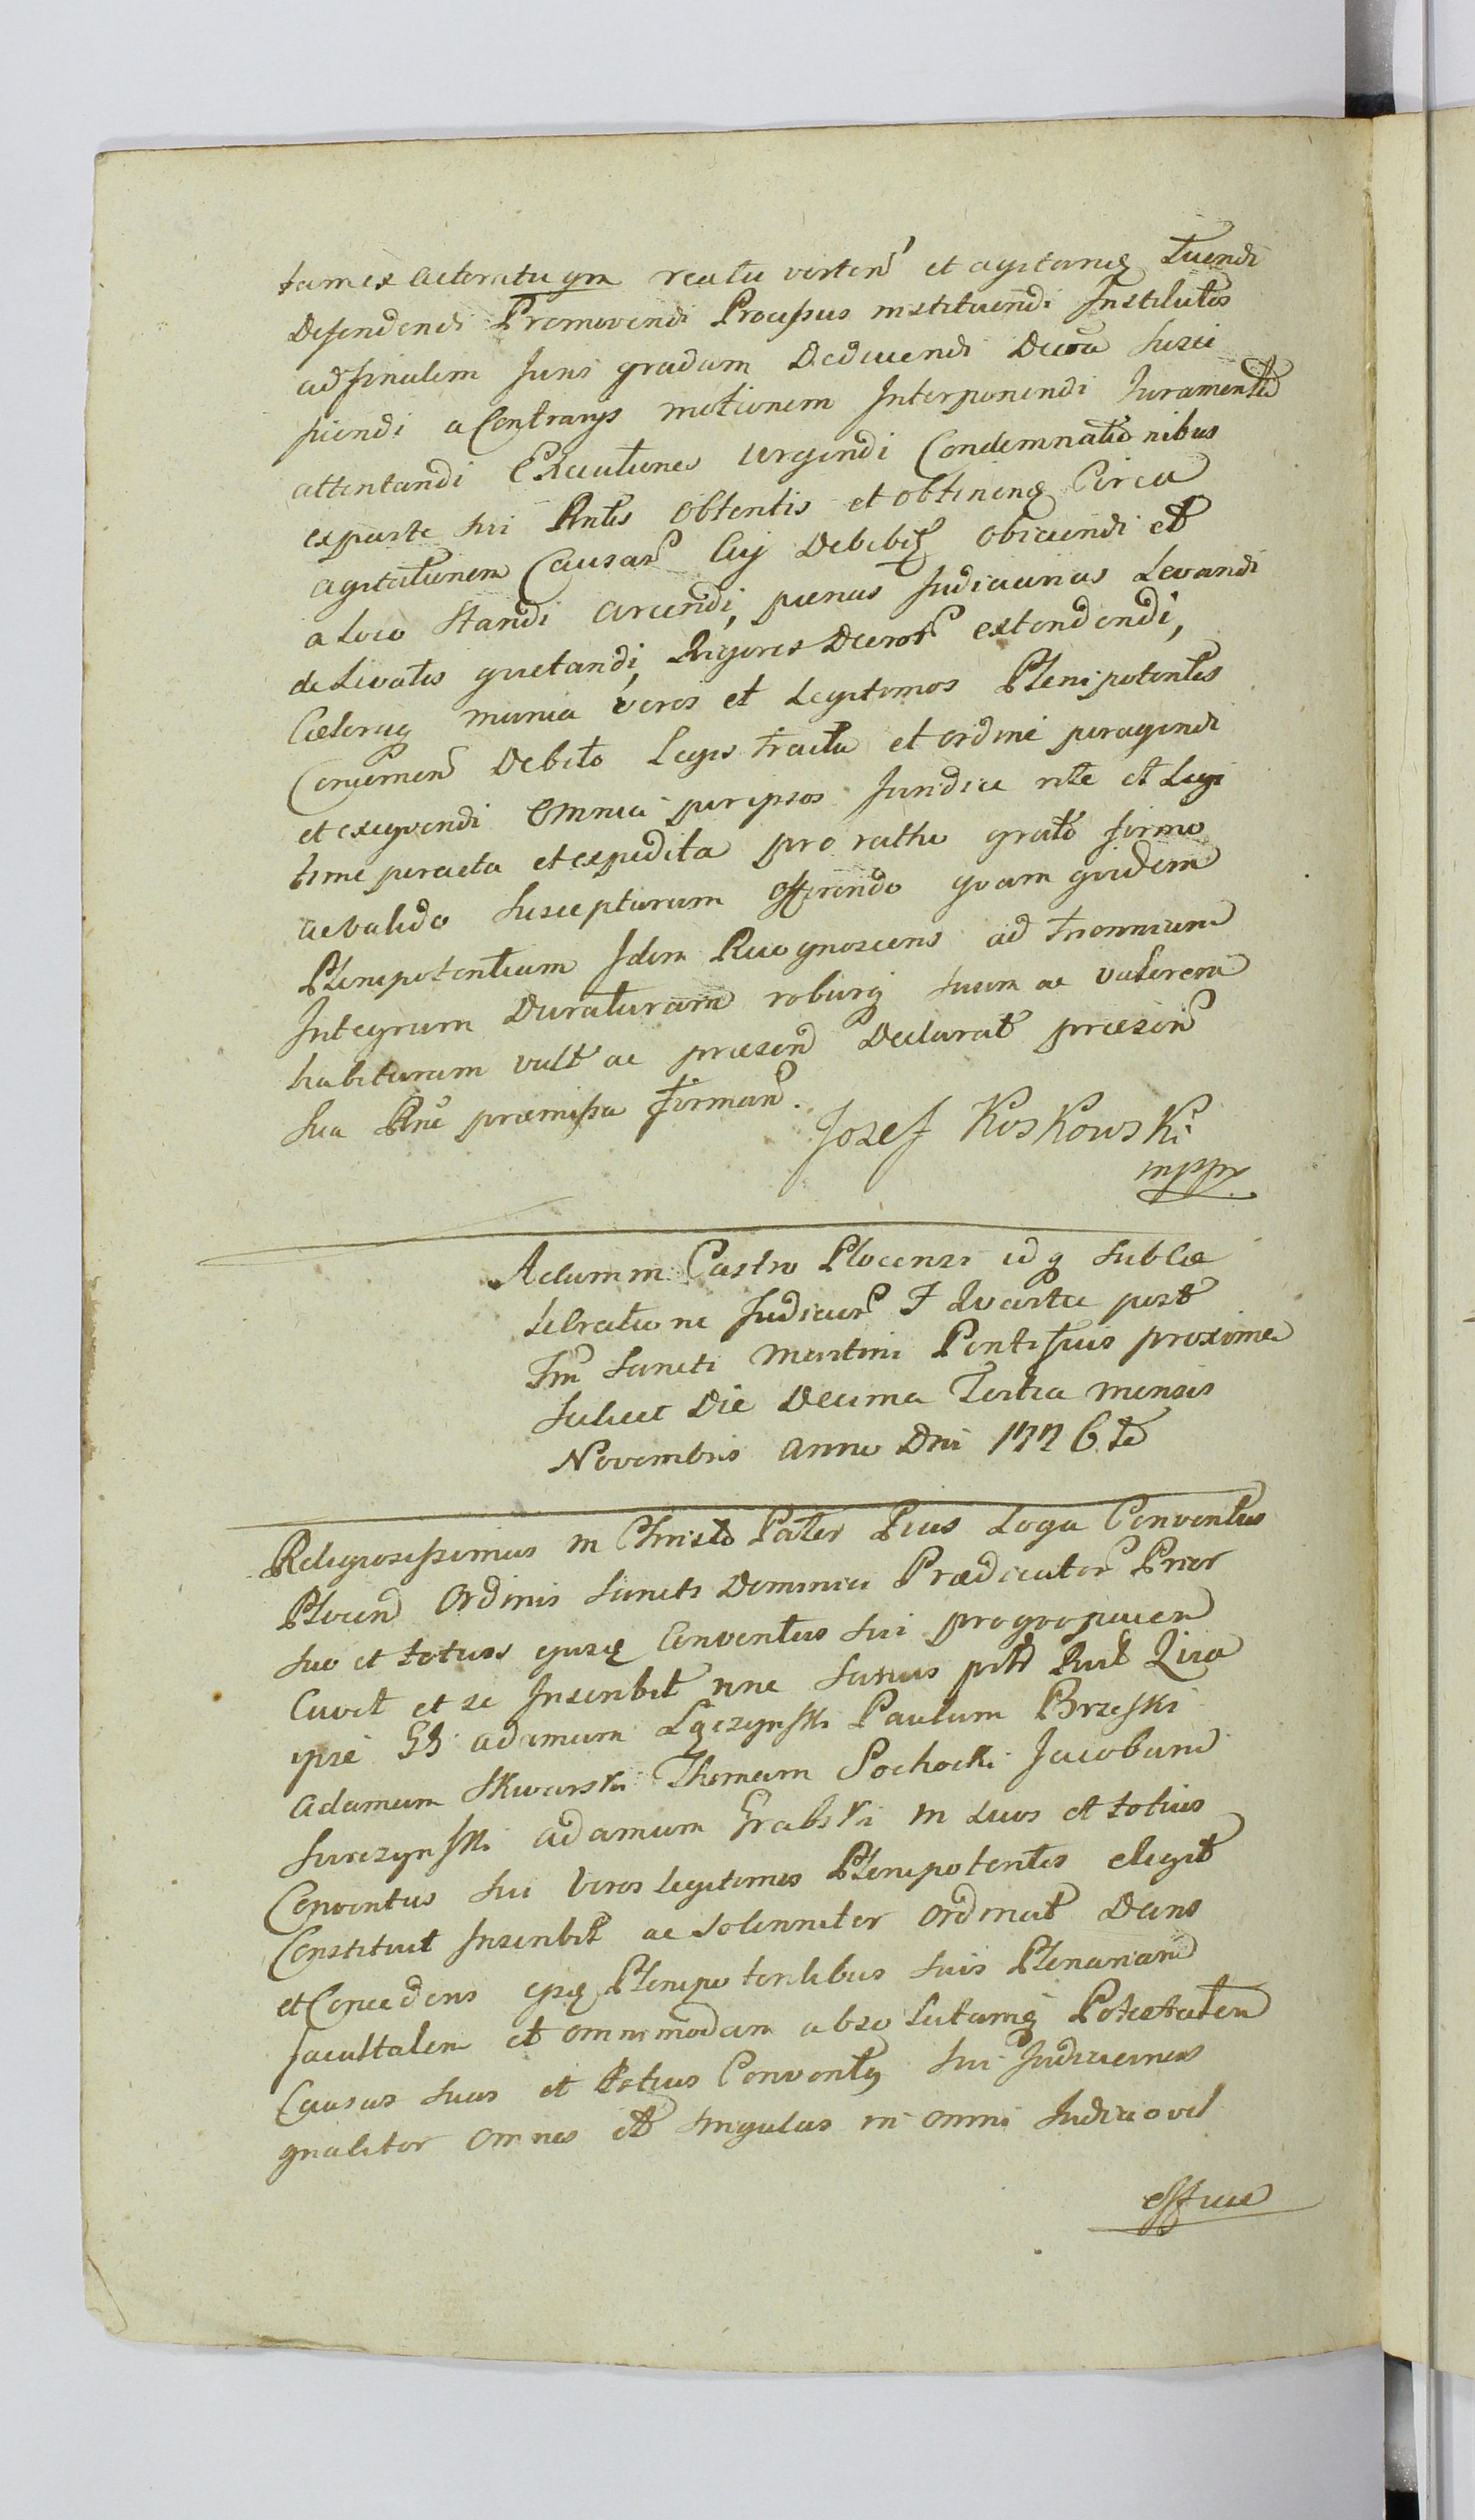 tam ex acteratu qm reatu verten et agitandꝫ tuendi
defendendi Promovendi Processus instituendi Institutos
ad finalem Juris gradum Deducendi Decreta susci
piendi a Contrarys motionem Interponendi Juramenta
attentandi Executiones urgendi Condemnationibus
ex parte sui Pntis obtentis et obtinendꝫ Circa
agitationem Causar Cuj Debebit obiiciendi et
a Loco Standi arcendi, pœnas Judiciarias Levandi
de Levatis quietandi, Rigores Decrot extendendi,
Cæteraqꝫ munia veros et Legitimos Plenipotentes
Concernen Debito Legis tractu et ordine peragendi
et exeqvendi Omnia per ipsos Juridice rite et Legi
time peracta et expedita pro ratho grato firmo
ac valido Suscepturum offerendo qvam qvidem
Plenipotentiam Idem Recognoscens ad triennium
Integrum Duraturam roburqꝫ suum ac valorem
habituram vult ac præsen Declarat præsen
Sua Pne præmissa firman.
Jozef Koskowski
mppr
Actum in Castro Plocensi idqꝫ sub Ce
lebratione Judicior F Qvarta post
Fm Sancti Martini Pontificis proxima
Scilicet Die Decima Tertia mensis
Novembris anno Dni 1776to
Religiosissimus in Christo Pater Pius Loga Conventus
Plocen Ordinis Sancti Dominici Prædicator Prior
suo et totius ejusqꝫ Conventus sui pro qvo pacen
Cavet et se Inscribit nne
ipse GG adamum Łączynski Paulum Brzeski
Adamum Skwarski Thomam Sochocki Jacobum
Surczynski adamum Grabski in suos et totius
Conventus sui Veros legitimos Plenipotentes elegit
Constituit Inscribit ac Solenniter Ordinat Dans
et Concedens ejsqꝫ Plenipotentibus suis Plenariam
facultatem et omnimodam absolutamqꝫ Potestatem
Causas suas et totius Conventꝫ sui Judiciarias
gnaliter omnes et singulas in omni Judicio vel
effice